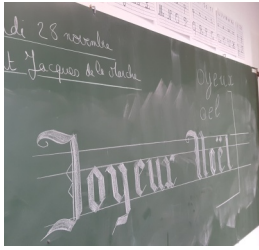 di 28 novembre
t Jacques de la Marche
Joyeux
Joyeux Noël